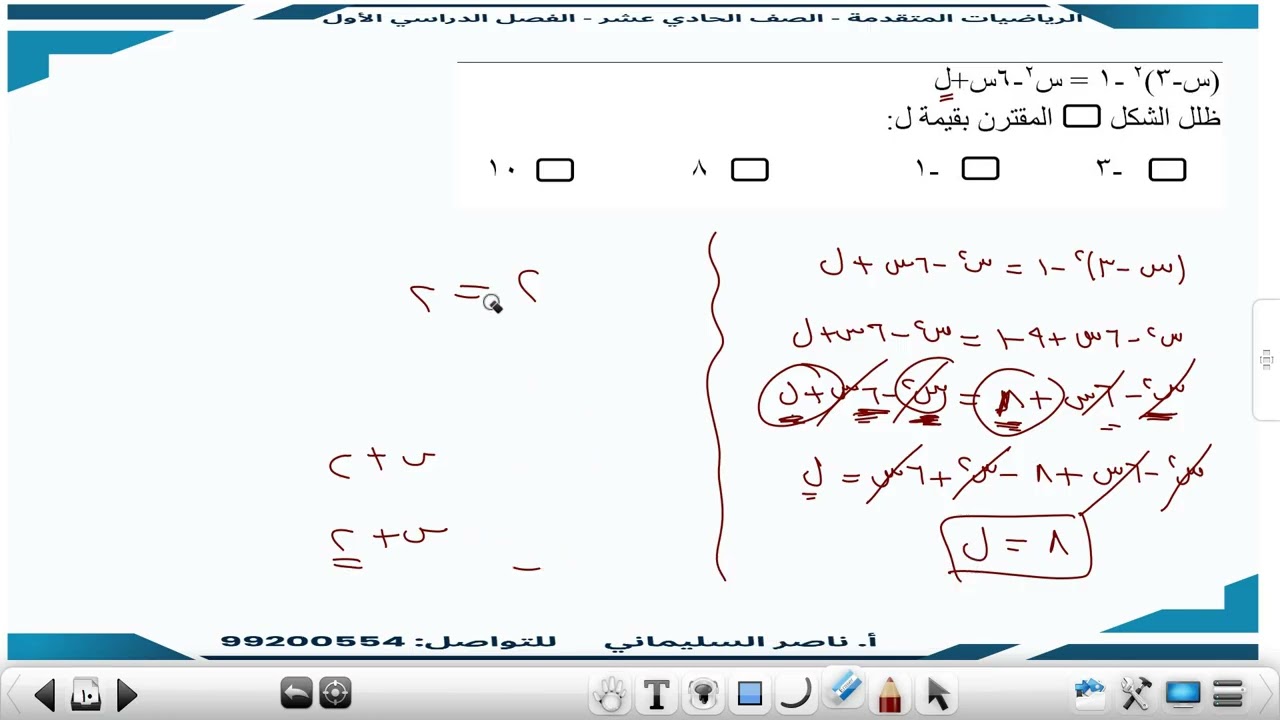 الرياضيات المتقدمة - الصف الحادي عشر - الفصل الدراسي الأول
(س-٣)٢ -١ = س٢-٦س+ل
ظلل الشكل المقترن بقيمة ل:
-٣ -١ ٨ ١٠
(س-٣)٢-١ = س٢-٦س+ل
س٢-٦س+٩-١ = س٢-٦س+ل
س٢-٦س+٨ = س٢-٦س+ل
س٢-٦س+٨-س٢+٦س = ل
٨ = ل
٢ = ٢
س+٢
س+٢
أ. ناصر السليماني للتواصل: 99200554
١٠
T